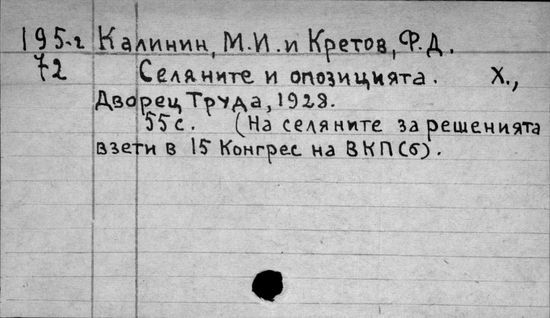 195-г Калинин, М.И. и Кретов, Ф.Д.
72 Селяните и опозицията. Х.,
Дворец Труда, 1928.
55 с. (На селяните за решенията
взети в 15 Конгрес на ВКП(б).